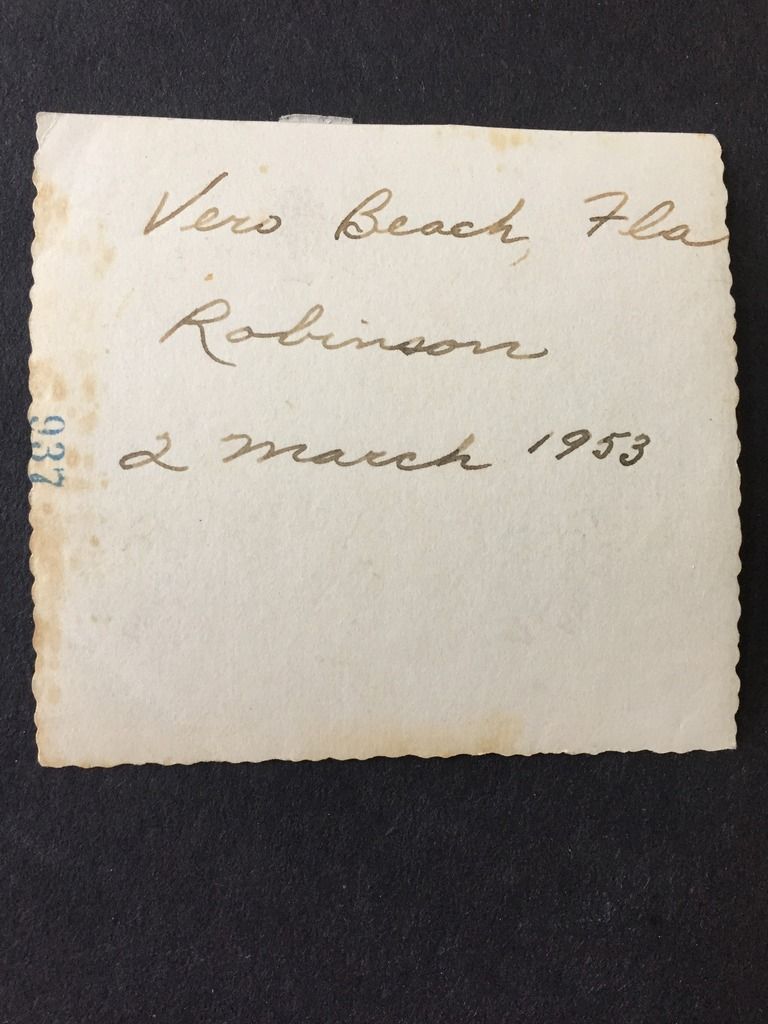 Vero Beach, Fla
Robinson
2 March 1953
937